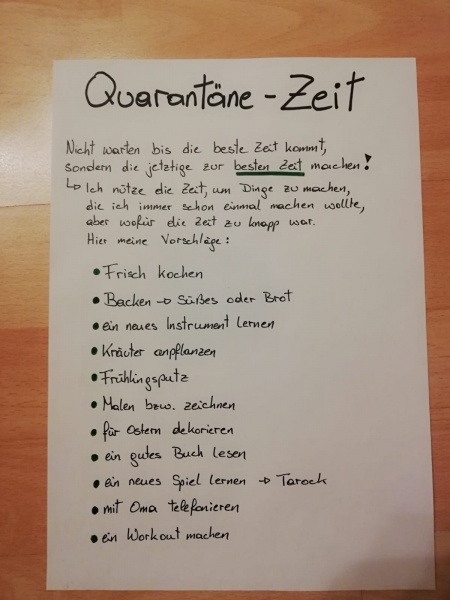 Quarantäne - Zeit
Nicht warten bis die beste Zeit kommt,
sondern die jetztige zur besten Zeit machen!
↳ Ich nütze die Zeit, um Dinge zu machen,
die ich immer schon einmal machen wollte,
aber wofür die Zeit zu knapp war.
Hier meine Vorschläge:
• Frisch kochen
• Backen → Süßes oder Brot
• ein neues Instrument lernen
• Kräuter anpflanzen
• Frühlingsputz
• Malen bzw. zeichnen
• für Ostern dekorieren
• ein gutes Buch lesen
• ein neues Spiel lernen → Tarock
• mit Oma telefonieren
• ein Workout machen